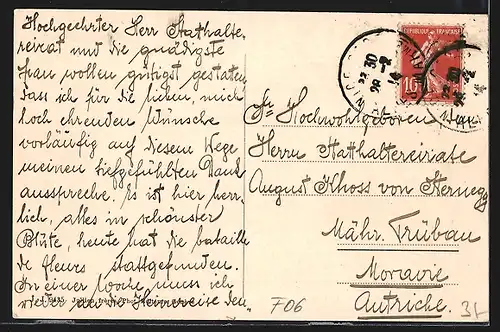 Hochgeehrter Herr Statthalte,
reirat und die gnädigste
Frau wollen gütigst gestaten
dass ich für die lieben, mich
hoch ehrenden Wünsche
vorläufig auf diesem Wege
meinen tiefgefühlten Dank
ausspreche. Es ist hier herr,
lich, alles in schönster
Blüte, heute hat die bataille
de fleurs stattgefunden.
In einer Woche muss ich
wieder auf die Heimreise den„
REPUBLIQUE FRANÇAISE
10
Sr Hochwohlgeboren Herr
Herrn Statthaltereirate
August Khoss von Sternegg
Mähr. Trübau
Moravie
Autriche.
F06